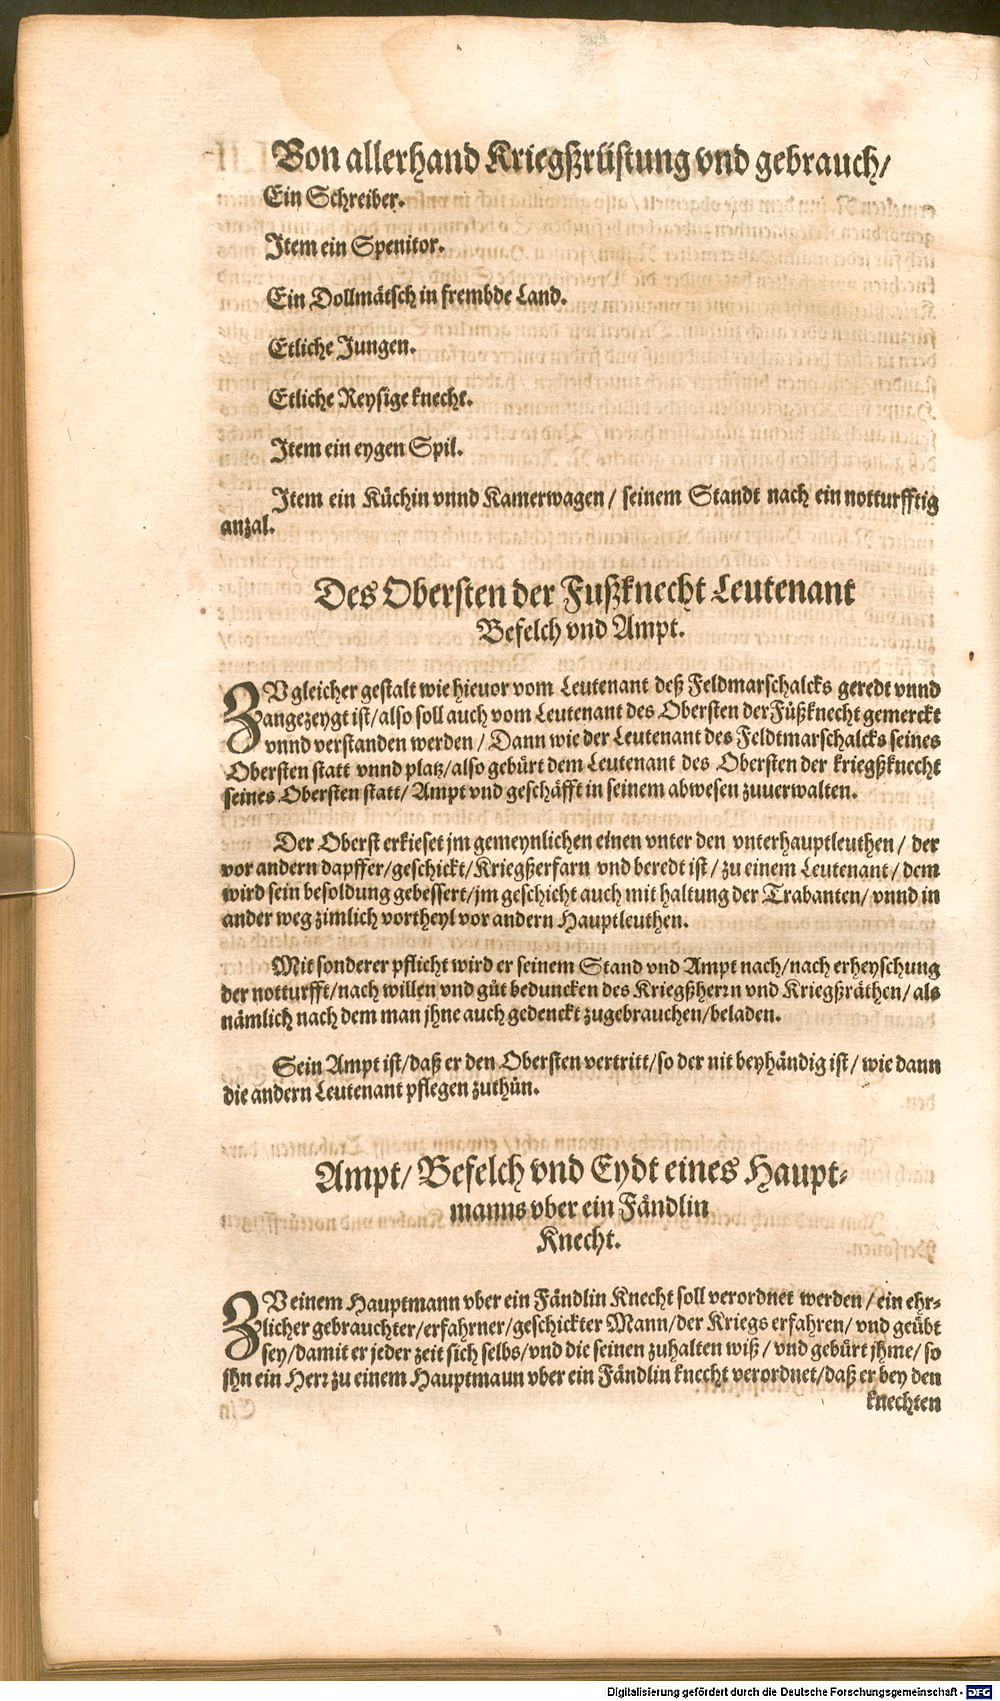 Von allerhand Kriegßrüstung vnd gebrauch/
Ein Schreiber.
Item ein Spenitor.
Ein Dollmätsch in frembde Land.
Etliche Jungen.
Etliche Reysige knecht.
Item ein eygen Spil.
Item ein Küchin vnnd Kamerwagen / seinem Standt nach ein notturfftig
anzal.
Des Obersten der Fußknecht Leutenant
Befelch vnd Ampt.
ZV gleicher gestalt wie hieuor vom Leutenant deß Feldmarschalcks geredt vnnd
angezeygt ist/also soll auch vom Leutenant des Obersten der Füßknecht gemerckt
vnnd verstanden werden / Dann wie der Leutenant des Feldtmarschalcks seines
Obersten statt vnnd platz/also gebürt dem Leutenant des Obersten der kriegßknecht
seines Obersten statt/ Ampt vnd geschäfft in seinem abwesen zuuerwalten.
Der Oberst erkieset jm gemeynlichen einen vnter den vnterhauptleuthen / der
vor andern dapffer/geschickt/Kriegßerfarn vnd beredt ist / zu einem Leutenant / dem
wird sein besoldung gebessert/jm geschicht auch mit haltung der Trabanten/ vnnd in
ander weg zimlich vortheyl vor andern Hauptleuthen.
Mit sonderer pflicht wird er seinem Stand vnd Ampt nach/nach erheyschung
der notturfft/nach willen vnd güt beduncken des Kriegßherrn vnd Kriegßräthen/ als
nämlich nach dem man jhne auch gedenckt zugebrauchen/beladen.
Sein Ampt ist/daß er den Obersten vertritt/so der nit beyhändig ist/ wie dann
die andern Leutenant pflegen zuthün.
Ampt/ Befelch vnd Eydt eines Haupt-
manns vber ein Fändlin
Knecht.
ZV einem Hauptmann vber ein Fändlin Knecht soll verordnet werden / ein ehr-
licher gebrauchter/erfahrner/geschickter Mann/der Kriegs erfahren/ vnd geübt
sey/damit er jeder zeit sich selbs/vnd die seinen zuhalten wiß / vnd gebürt jhme/ so
jhn ein Herr zu einem Hauptmann vber ein Fändlin knecht verordnet/daß er bey den
knechten
Digitalisierung gefördert durch die Deutsche Forschungsgemeinschaft - DFG